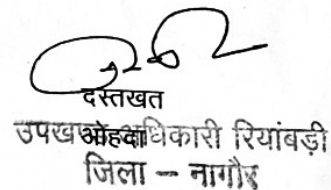 दस्तखत
ओहदा
उपखण्ड अधिकारी रियांबड़ी
जिला – नागौर